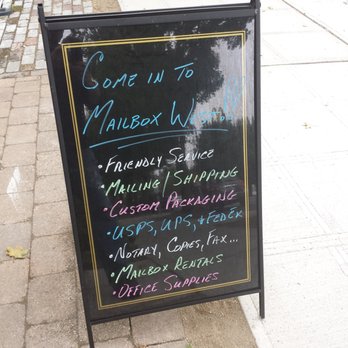 COME IN TO
MAILBOX
• FRIENDLY SERVICE
• MAILING/SHIPPING
• CUSTOM PACKAGING
• USPS, UPS, & FEDEX
• NOTARY, COPIES, FAX...
• MAILBOX RENTALS
• OFFICE SUPPLIES